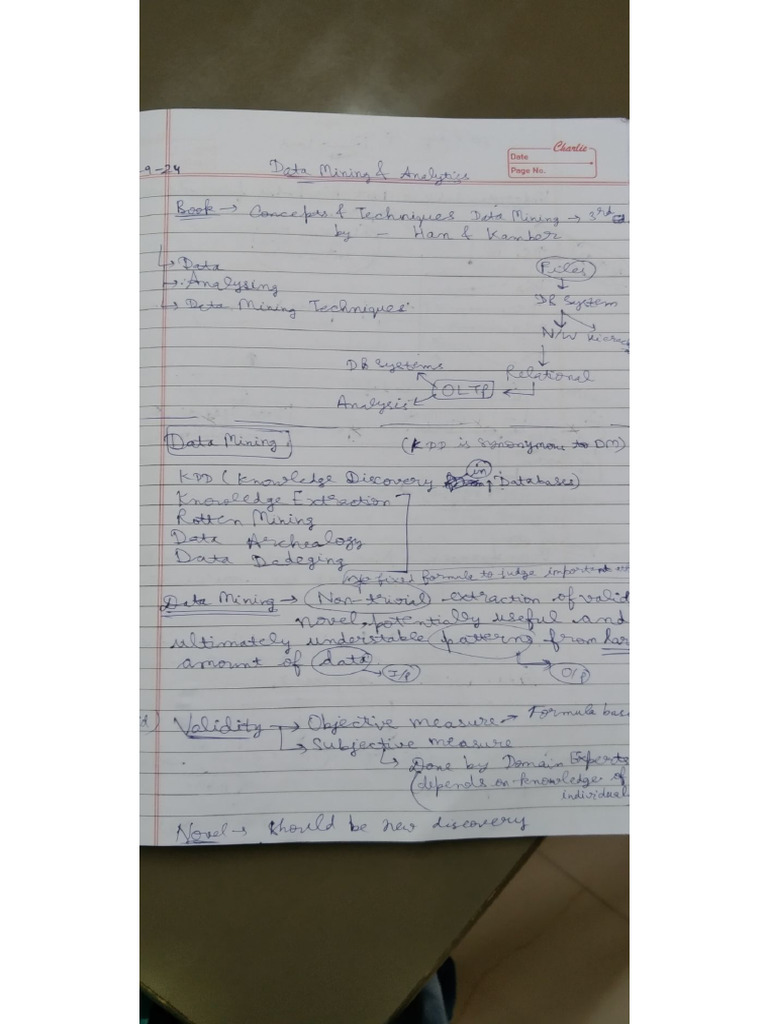 -9-24
Data Mining & Analytics
Charlie
Date
Page No.
Book → Concepts & Techniques Data Mining → 3rd
by - Han & Kamber
→ Data
→ Analysing
→ Data Mining Techniques
Files
DB System
N/W Hierarc
Relational
OLTP
DB Systems
Analysis
Data Mining (KDD is synonymous to DM)
KDD (Knowledge Discovery in Databases)
Knowledge Extraction
Data Archealogy
Data Dadeging
No fixed formula to judge important
Data Mining → Non-trivial extraction of valid
novel, potentially useful and
ultimately understable patterns from lar
amount of data
→ I/P
→ O/P
Validity → Objective measure → Formula base
→ Subjective measure
→ Done by Domain Experts
(depends on knowledge of
individual
Novel → Should be new discovery